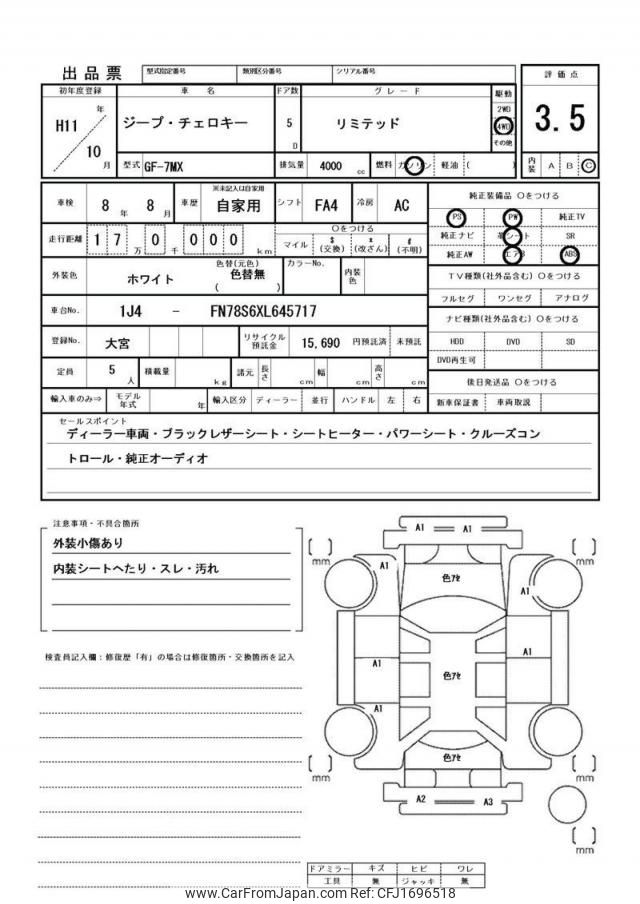 出品票 型式指定番号 類別区分番号 シリアル番号
評価点
3.5
内装 A B C
初年度登録 車名 ドア数 グレード 駆動
H11 年 10 月
ジープ・チェロキー 5 D リミテッド
2WD
4WD
その他
型式 GF-7MX 排気量 4000 cc 燃料 ガソリン 軽油 ( )
車検 8年 8月 車歴 ※未記入は自家用 自家用 シフト FA4 冷房 AC
走行距離 17万0千000km
○をつける
マイル $(交換) x(改ざん) #(不明)
外装色 ホワイト 色替(元色) 色替無 ( ) カラーNo. 内装色
車台No. 1J4 - FN78S6XL645717
登録No. 大宮 リサイクル預託金 15,690 円預託済 未預託
定員 5人 積載量 kg 諸元 長さ cm 幅 cm 高さ cm
輸入車のみ⇒ モデル年式 年 輸入区分 ディーラー 並行 ハンドル 左 右
純正装備品 ○をつける
PS PW 純正TV
純正ナビ 革シート SR
純正AW エアB ABS
TV種類(社外品含む) ○をつける
フルセグ ワンセグ アナログ
ナビ種類(社外品含む) ○をつける
HDD DVD SD
DVD再生可
後日発送品 ○をつける
新車保証書 車両取説
セールスポイント
ディーラー車両・ブラックレザーシート・シートヒーター・パワーシート・クルーズコン
トロール・純正オーディオ
注意事項・不具合箇所
外装小傷あり
内装シートへたり・スレ・汚れ
検査員記入欄：修復歴「有」の場合は修復箇所・交換箇所を記入
A1 A1
[ ] mm
[ ] mm
色ｱｾ
A1
A1
A1
色ｱｾ
A1
色ｱｾ
[ ] mm
[ ] mm
A2 A3
[ ] mm
ドアミラー キズ ヒビ ワレ
工具 無 ジャッキ 無
www.CarFromJapan.com CFJ1696518